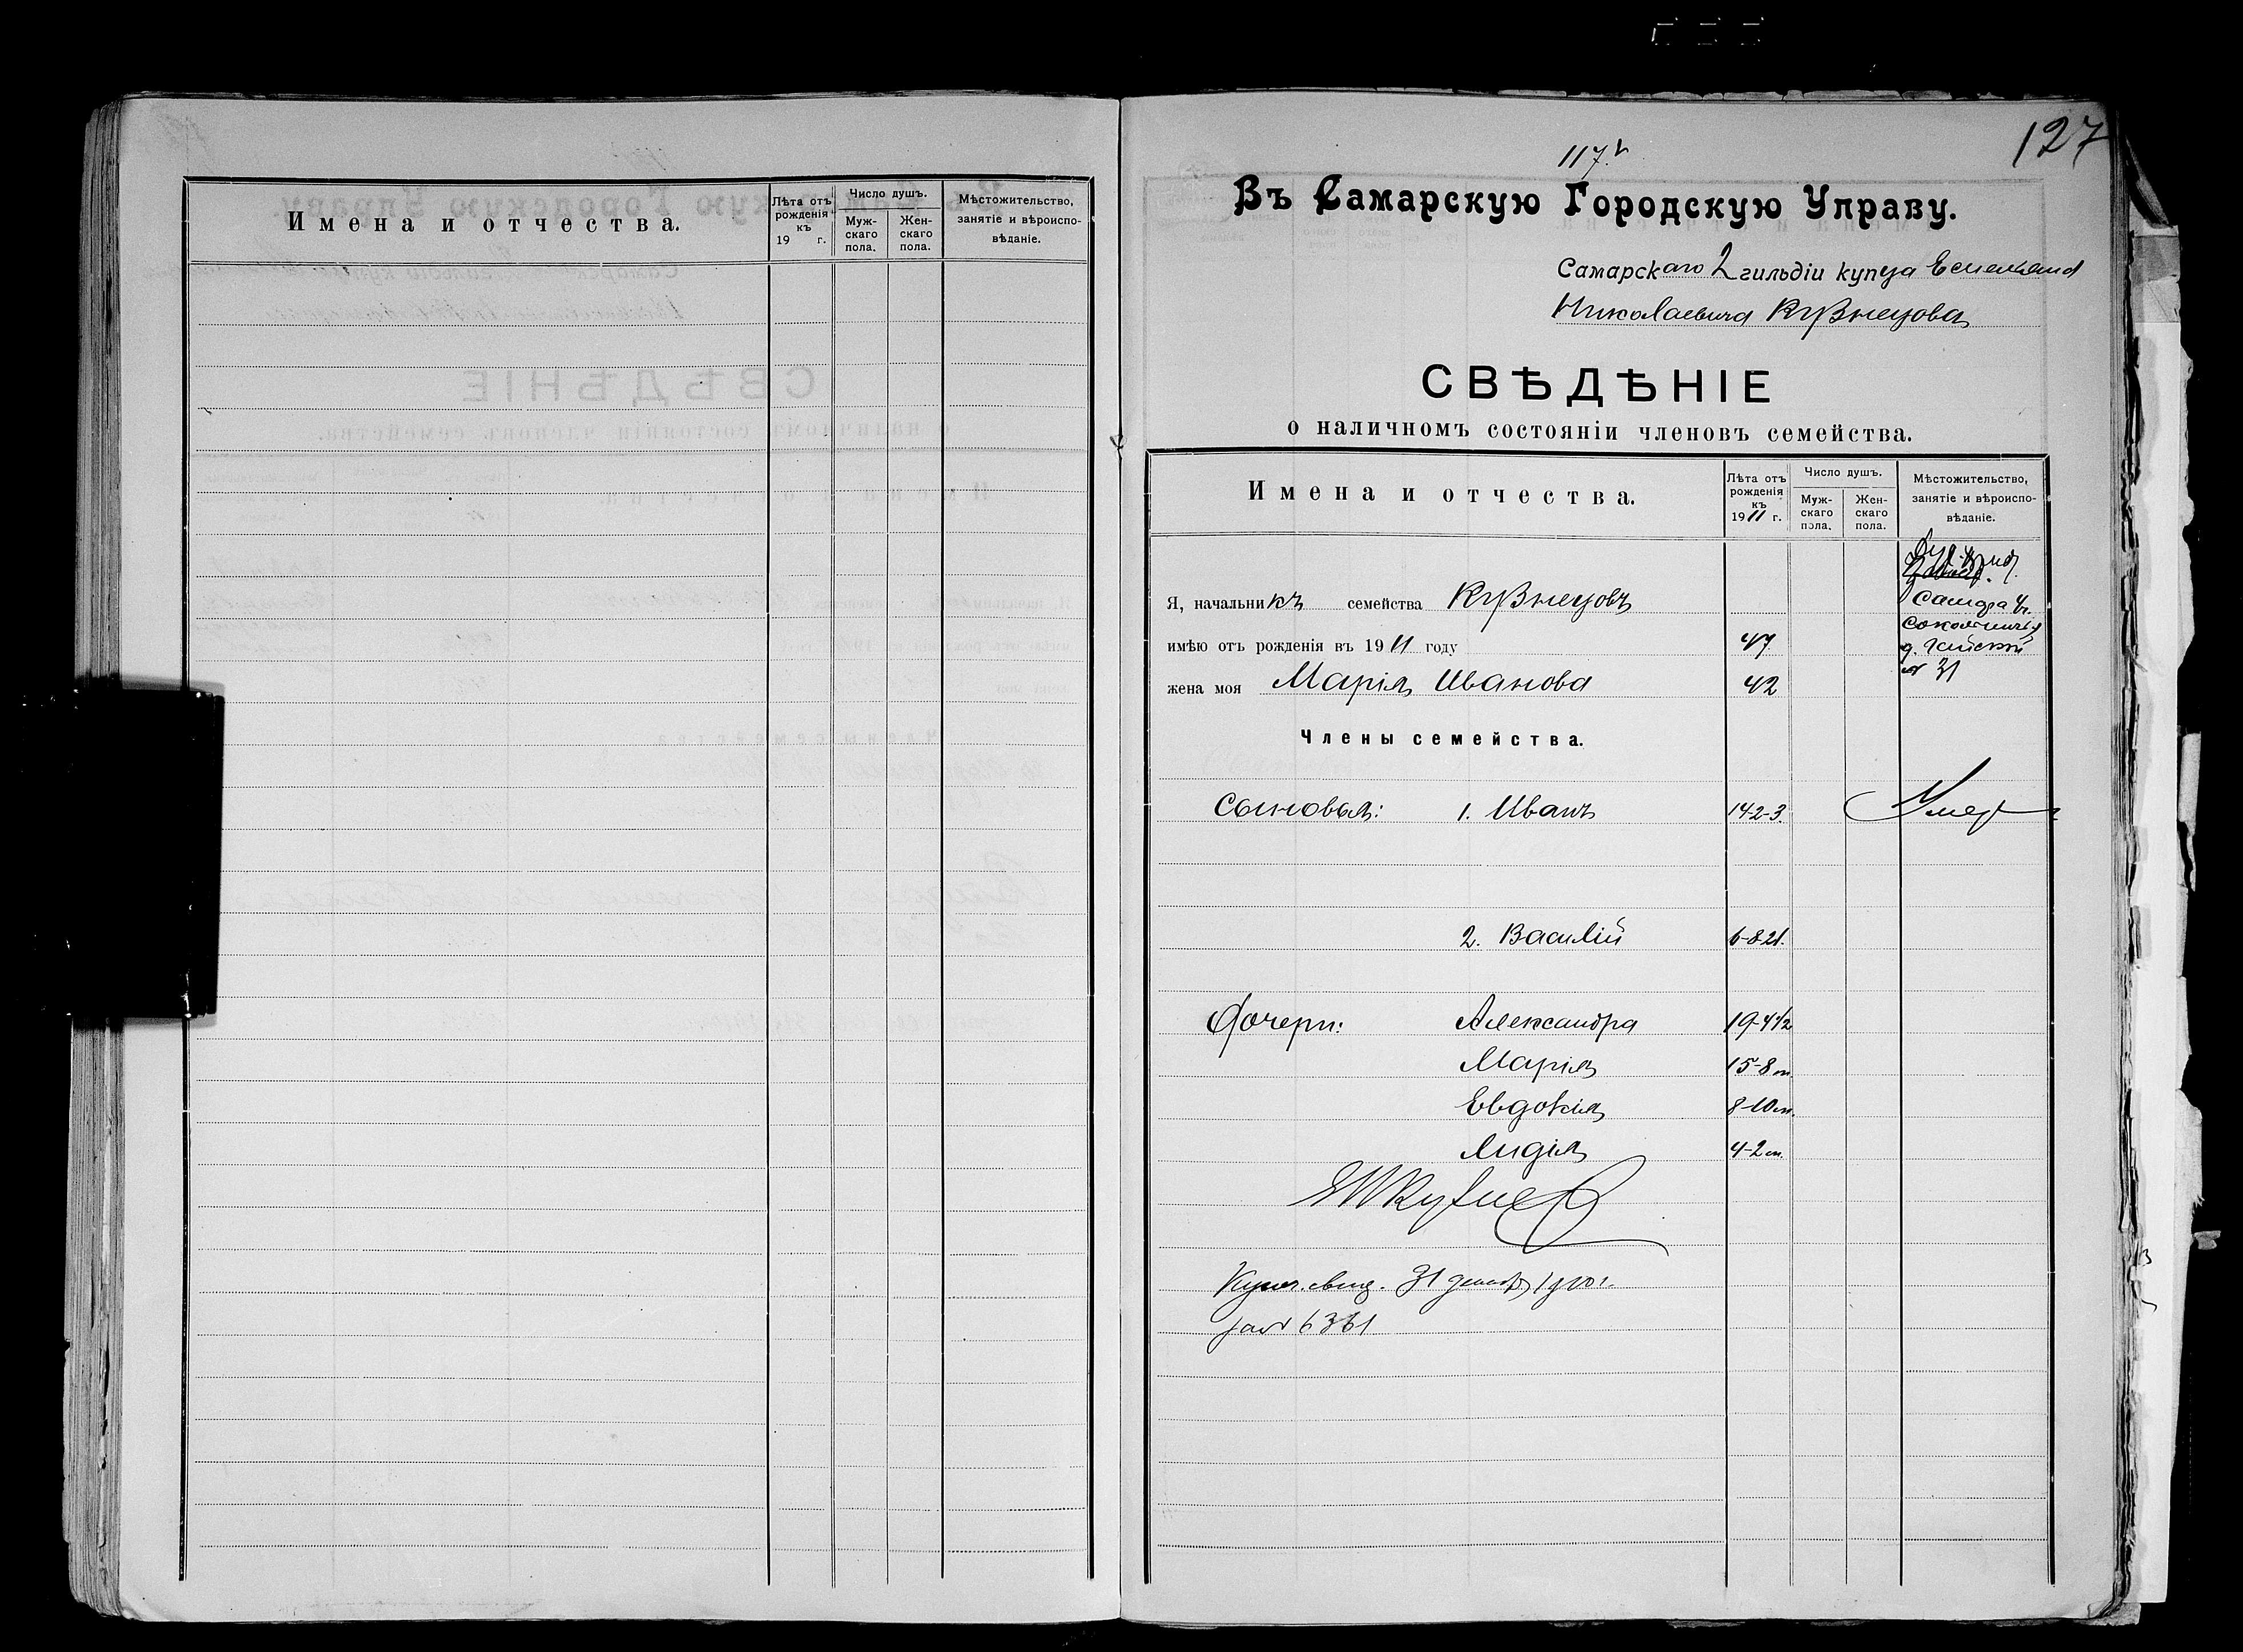 Имена и отчества.
Лѣта отъ рожденія къ 19 г.
Число душъ.
Мужскаго пола.
Женскаго пола.
Мѣстожительство, занятіе и вѣроисповѣданіе.
127
117
Въ Самарскую Городскую Управу.
Самарскаго 2 гильдіи купца Емельяна
Николаевича Кузнецова
СВѢДѢНІЕ
о наличномъ состояніи членовъ семейства.
Имена и отчества.
Лѣта отъ рожденія къ 1911 г.
Число душъ.
Мужскаго пола.
Женскаго пола.
Мѣстожительство, занятіе и вѣроисповѣданіе.
Я, начальникъ семейства Кузнецовъ
Самара
имѣю отъ рожденія въ 1911 году 47
жена моя Марія Иванова 42
№ 31
Члены семейства.
Сыновья: 1. Иванъ 14-2-3. Умер
2. Василій 6-8-21.
Дочери: Александра 19-4 1/2
Марія 15-8 м.
Евдокія 8-10 м.
Лидія 4-2 м.
ЕНКузнецов
Купеч. свид. 31 декабр 1910 г.
за № 6361